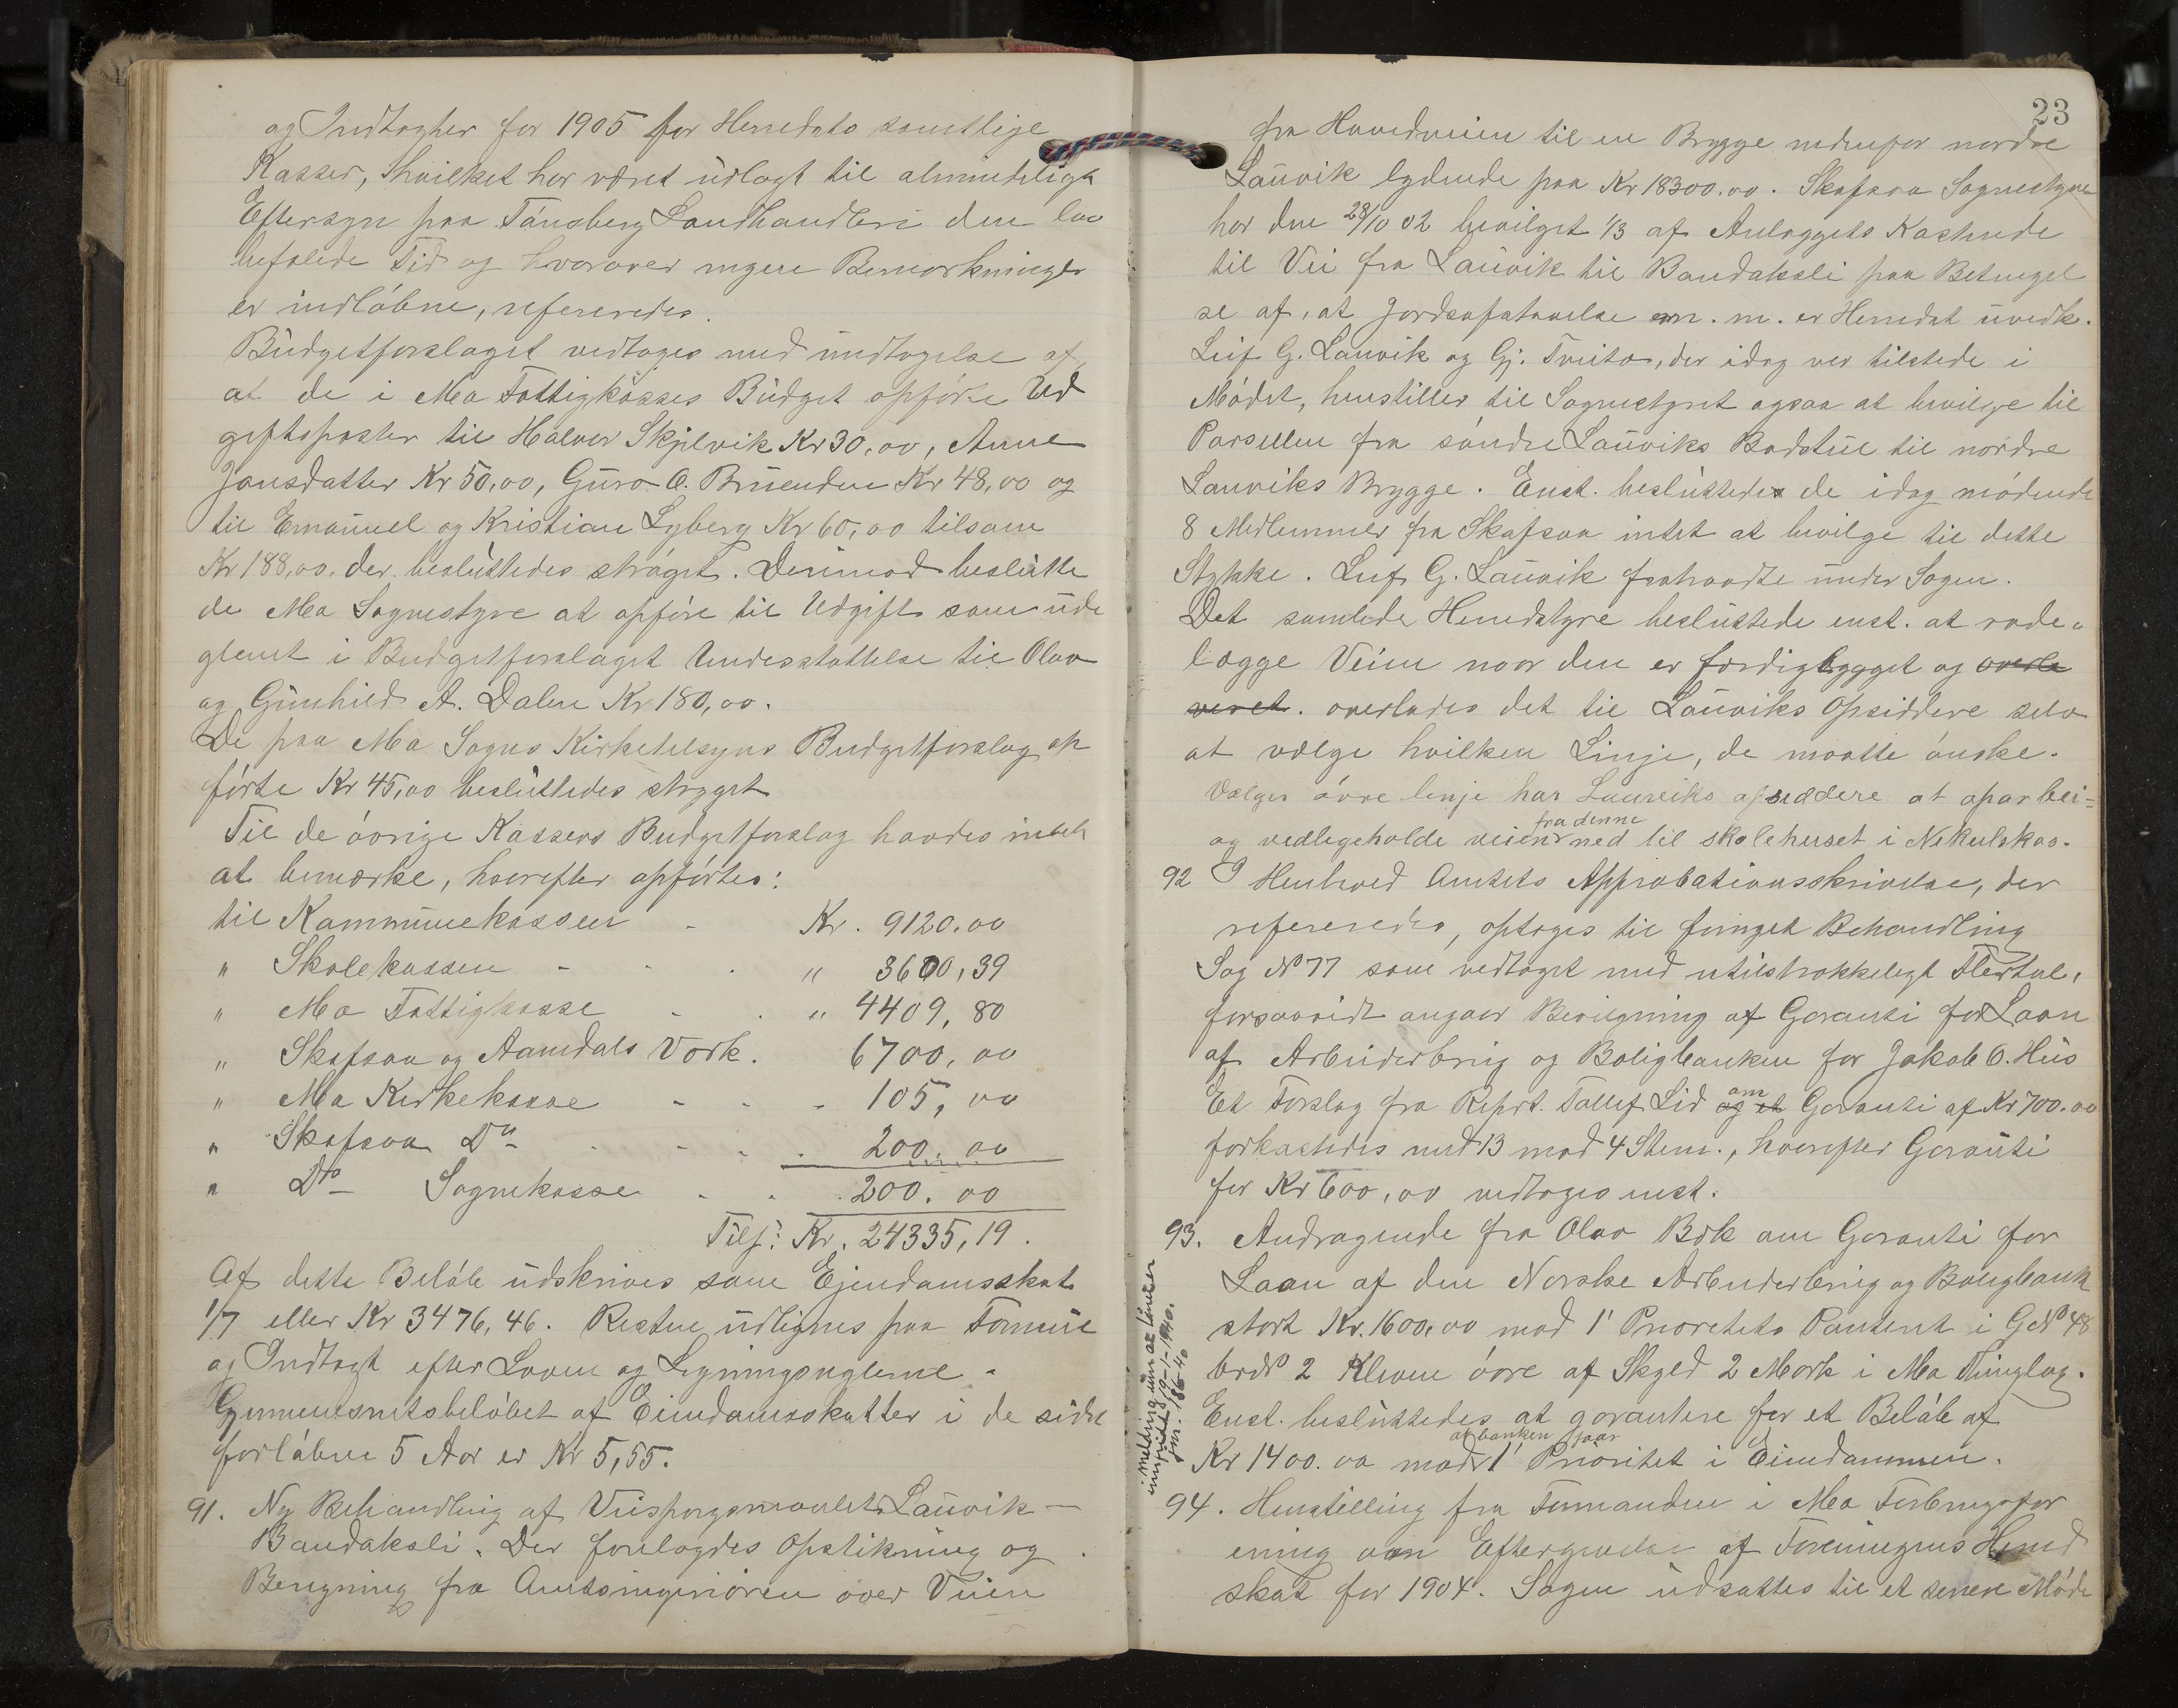 og Indtægter for 1905 for Herredets samtlige
Kasser, hvilket har været udlagt til almindeligt
Eftersyn paa Tønsberg Landhandleri den lov
befalede Tid og hvorover ingen Bemærkninger
er indløbne, refereredes.
Budgetforslaget vedtoges med undtagelse af,
at de i Mo Fattigkasses Budget opførte Ud
giftsposter til Halvor Skjelvik Kr 30,00, Anne
Jonsdatter Kr 50,00, Guro O. Kr 48,00 og
til Emanuel og Kristian Lyberg Kr 60,00 tilsam
Kr 188,00. der besluttedes strøget. Derimod beslutte
de Mo Sognestyre at opføre til Udgift som ude
glemt i Budgetforslaget Understøttelse til Olav
og Gunhild A. Dalen Kr 180,00.
De paa Mo Sogns Kirketilsyns Budgetforslag op
førte Kr 45,00 besluttedes strøget
Til de øvrige Kassers Budgetforslag havdes intet
at bemærke, hvorefter opførtes:
til Kommunekassen - Kr. 9120.00
" Skolekassen - . . " 3600,39
" Mo Fattigkasse - . " 4409,80
" Skafsaa og Aamdals Værk. 6700,00
" Mo Kirkekasse - - - 105,00
" Skafsaa Do . - - . 200.00
" Dto Sognekasse - . . 200.00
Tils: Kr. 24335,19.
Af dette Beløb udskrives som Ejendomsskat
1/7 eller Kr 3476,46. Resten udlignes paa Formue
og Indtægt efter Loven og Ligningsreglerne.
Gjennemsnitsbeløbet af Eiendomsskatter i de sidst
forløbne 5 Aar er Kr 5,55.
91. Ny Behandling af Veispørgsmaalet Lauvik -
Bandaksli. Der forelagdes Opstikning og
Beregning fra Amtsingeniøren over Veien
23
fra Hovedveien til en Brygge nedenfor nordre
Lauvik lydende paa Kr 18300.00. Skafsaa Sognestyre
har den 28/10 02 bevilget 1/3 af Anlæggets Kostende
til Vei fra Lauvik til Bandaksli paa Betingel
se af, at Jordsafstaaelse m. m. er Herredet uvedk.
Leif G. Lauvik og Gj. Tveito, der idag var tilstede i
Mødet, henstiller til Sognestyret ogsaa at bevilge til
Parsellen fra søndre Lauviks Badstue til nordre
Lauviks Brygge. Enst. besluttede de idag mødende
8 Medlemmer fra Skafsaa intet at bevilge til dette
Stykke. Leif G. Lauvik fratraadte under Sagen.
Det samlede Herredstyre besluttede enst. at rode-
lægge Veien naar den er færdigbygget og overle
veret. overlades det til Lauviks Opsiddere selv
at vælge hvilken Linje, de maatte ønske.
Vælges øvre linje har Lauviks opsiddere at oparbei=
og vedlegeholde veien fra denne ned til skolehuset i
92 I Henhold Amtets Approbationsskrivelse, der
refereredes, optoges til fornyet Behandling
Sag No 77 som vedtaget med utilstrækkeligt Flertal,
forsaavidt angaar Bevilgning af Garanti for Laan
af Arbeiderbrug og Boligbanken for Jakob O. Hus
Et Forslag fra Reprt. Tallef Lid og et om Garanti af Kr 700.00
forkastedes med 13 mod 4 Stem., hvorefter Garanti
for Kr 600,00 vedtoges enst.
93. Andragende fra Olav Bæk om Garanti for
Laan af den Norske Arbeiderbrug og Boligbank
stort Kr. 1600,00 mod 1' Prioritets Panteret i GNo 48
brNo 2 Kleven øvre af Skyld 2 Mark i Mo Thinglag.
Enst. besluttedes at garantere for et Beløb af
Kr 1400.00 mod at banken faar 1' Prioritet i Eiendommen.
melding um at lånet er
innfridd 19-1-1940.
jnr. 186-40
94. Henstilling fra Formanden i Mo Forbrugsfor
ening om Eftergivelse af Foreningens Herred
skat for 1904. Sagen udsattes til et senere Møde